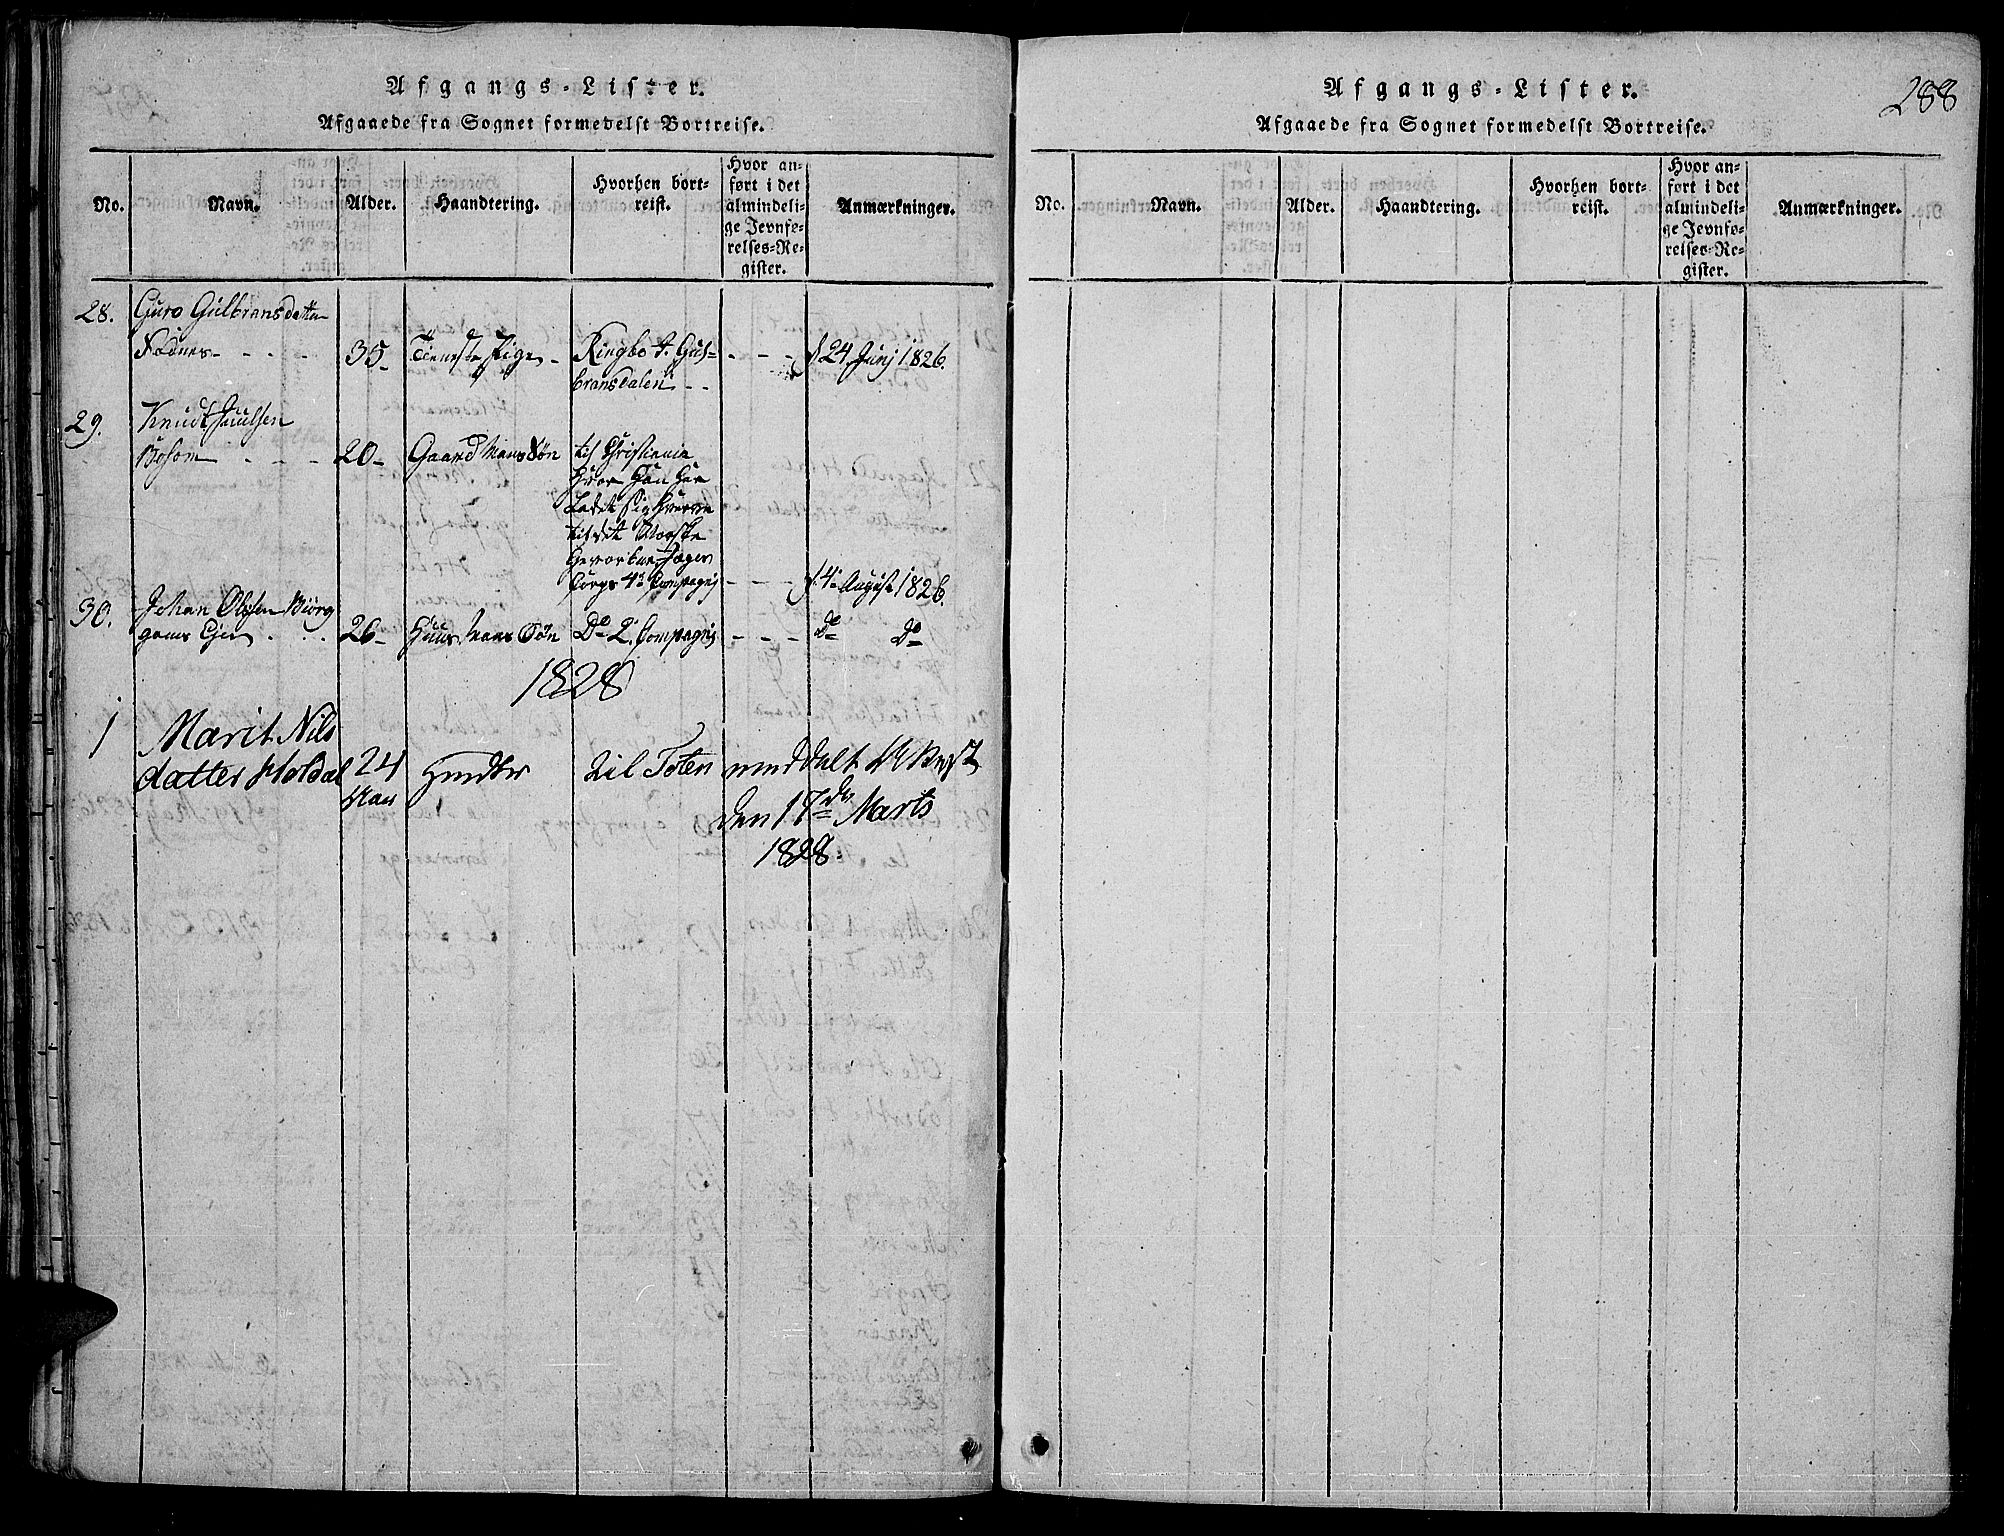 Afgangs-Lister.
Afgaaede fra Sognet formedelst Bortreise.
No.
Navn.
Alder.
Haandtering.
Hvorhen bort-
reist.
Hvor an-
ført i det
almindeli-
ge Jevnfø-
relses-Re-
gister.
Anmærkninger.
28. Guro Gulbransdatter
35 Tieneste Pige Ringboe i Gul- 24 Junj 1826.
bransdalen
29. Knudt
20 Gaard Mans Søn til Christiania
hvor han har
ladet sig hverve
til det Norske
Jæger
Corps 4de Compagni 4 August 1826.
30. Johan Olsen Biørg
26 Huus Mans Søn Do 2. Compagni Do Do
1828
1 Marit Nils
datter Holdal 24 til Toten meddelt Attest
Aar
den 17de Marts
1828.
288
Afgangs-Lister.
Afgaaede fra Sognet formedelst Bortreise.
No.
Navn.
Alder.
Haandtering.
Hvorhen bort-
reist.
Hvor an-
ført i det
almindeli-
ge Jevnfø-
relses-Re-
gister.
Anmærkninger.